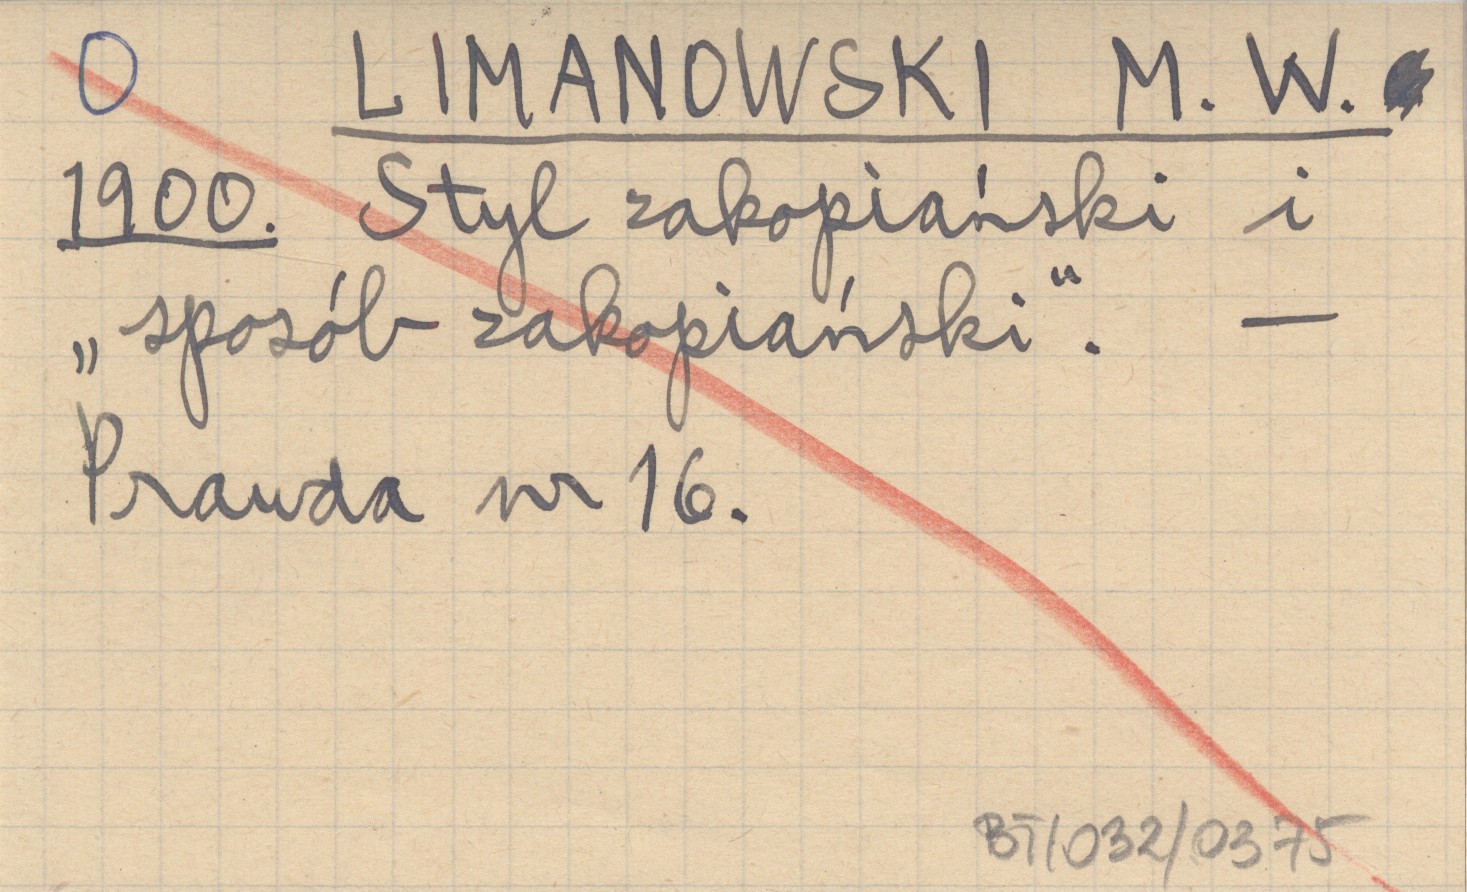 O LIMANOWSKI M. W.
1900. Styl zakopiański i
„sposób zakopiański“. —
Prawda nr 16.
BT/032/0375